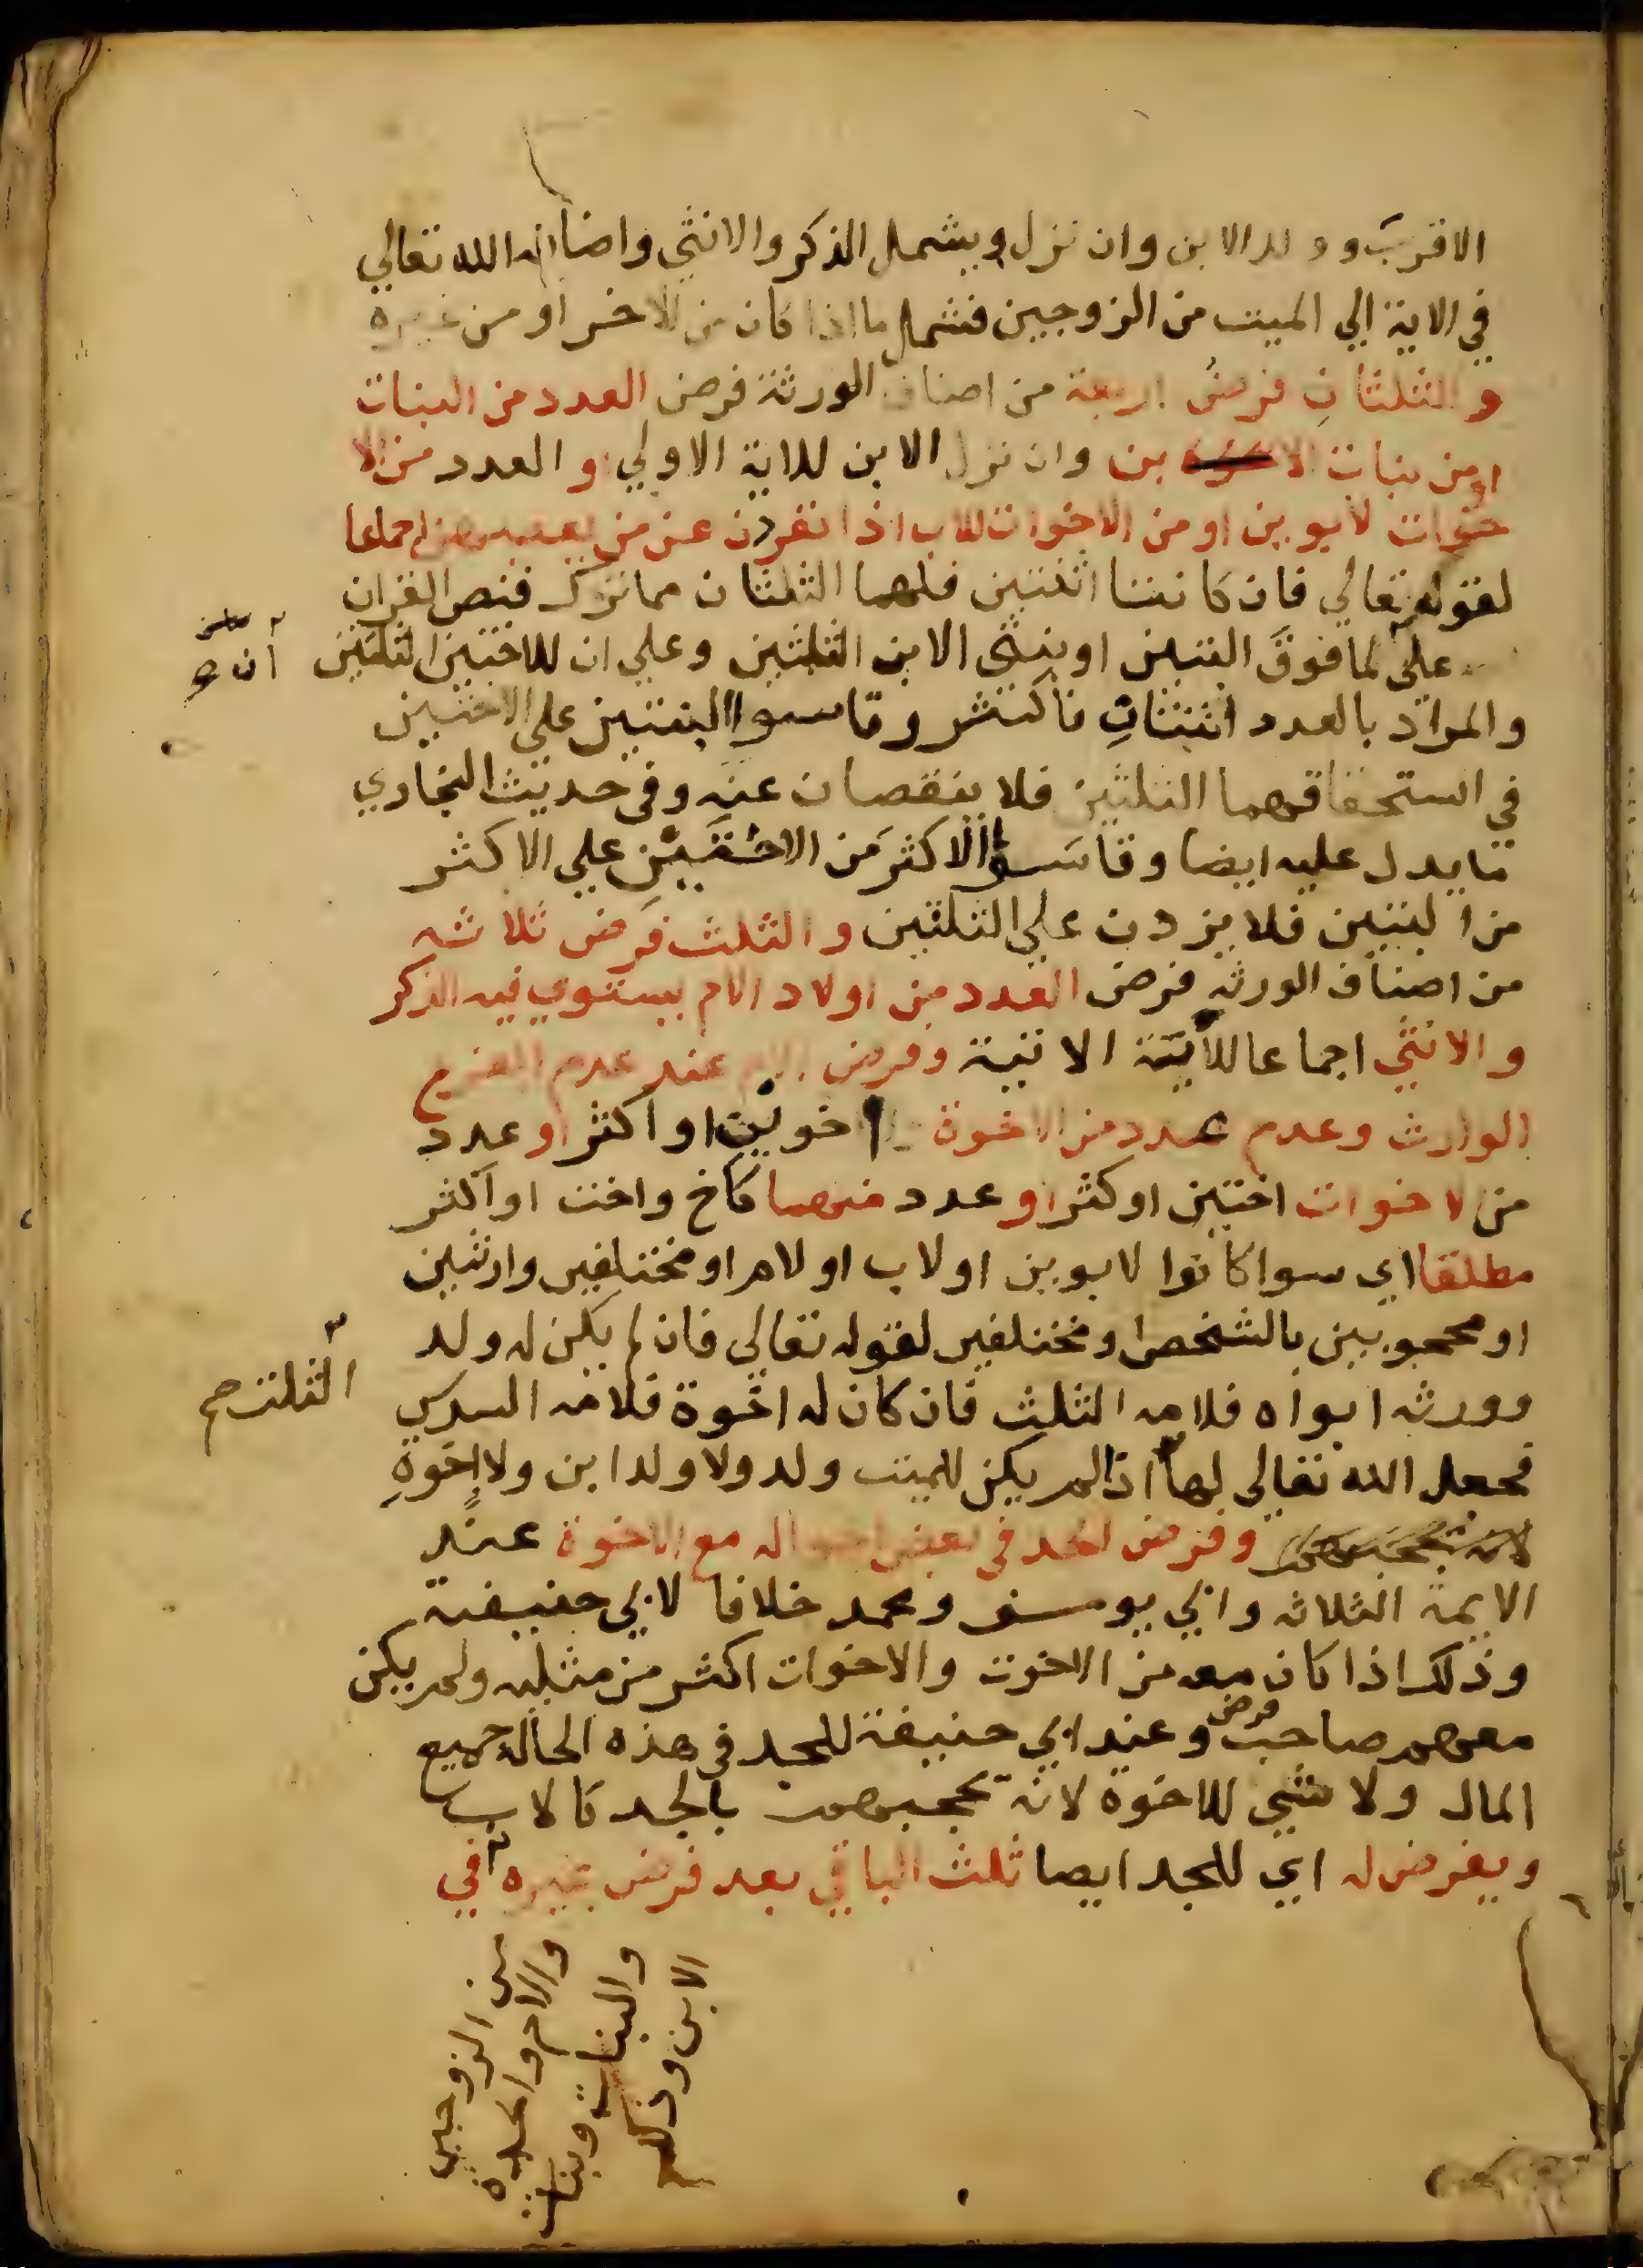 الاقرب وولد الابن وان نزل ويشمل الذكر والانثي واضافه الله تعالي
في الاية الي الميت من الزوجين فشمل ما اذا كان من الاخر او من غيره
والثلثان فرض اربعة من اصناف الورثة فرض العدد من البنات
او من بنات الابن وان نزل الابن للاية الاولي او العدد من الا
خوات لابوين او من الاخوات للاب اذا انفردن عن من يعصبهن اجماعا
لقوله تعالي فان كانتا اثنتين فلهما الثلثان مما ترك فنص القران
علي لما فوق البنتين او بنتي الابن الثلثين وعلي ان للاختين الثلثين
ان
والمراد بالعدد اثنتان فاكثر وقاسوا البنتين علي الاختين
في استحقاقهما الثلثين فلا ينقصان عنه وفي حديث البخاري
ما يدل عليه ايضا وقاسوا الاكثر من الاختين علي الاكثر
من البنتين فلا يزدن علي الثلثين والثلث فرض ثلاثه
من اصناف الورثه فرض العدد من اولاد الام يستوي فيه الذكر
والانثي اجماعا للاية الاتية وفرض الام عند عدم الفرع
الوارث وعدم عدد من الاخوة اخوين او اكثر او عدد
من الاخوات اختين او كثر او عدد منهما كاخ واخت او اكثر
مطلقا اي سوا كانوا لابوين او لاب او لام او مختلفين وارثين
او محجوبين بالشخص او مختلفين لقوله تعالي فان لم يكن له ولد
وورثه ابواه فلامه الثلث فان كان له اخوة فلامه السدس
الثلث صح
فجعل الله تعالي لها اذا لم يكن للميت ولد ولا ولد ابن ولا اخوة
وفرض الجد في بعض احواله مع الاخوة عند
الايمة الثلاثه وابي يوسف ومحمد خلافا لابي حنيفة
وذلك اذا كان معه من الاخوت والاخوات اكثر من مثليه ولم يكن
معهم صاحب فرض وعند ابي حنيفة للجد في هذه الحالة جميع
المال ولا شي للاخوة لانه يحجبهم بالجد كالاب
ويفرض له اي للجد ايضا ثلث الباقي بعد فرض غيره في
من الزوجين
والام والجدة
والبنات وبنات
الابن وذلك